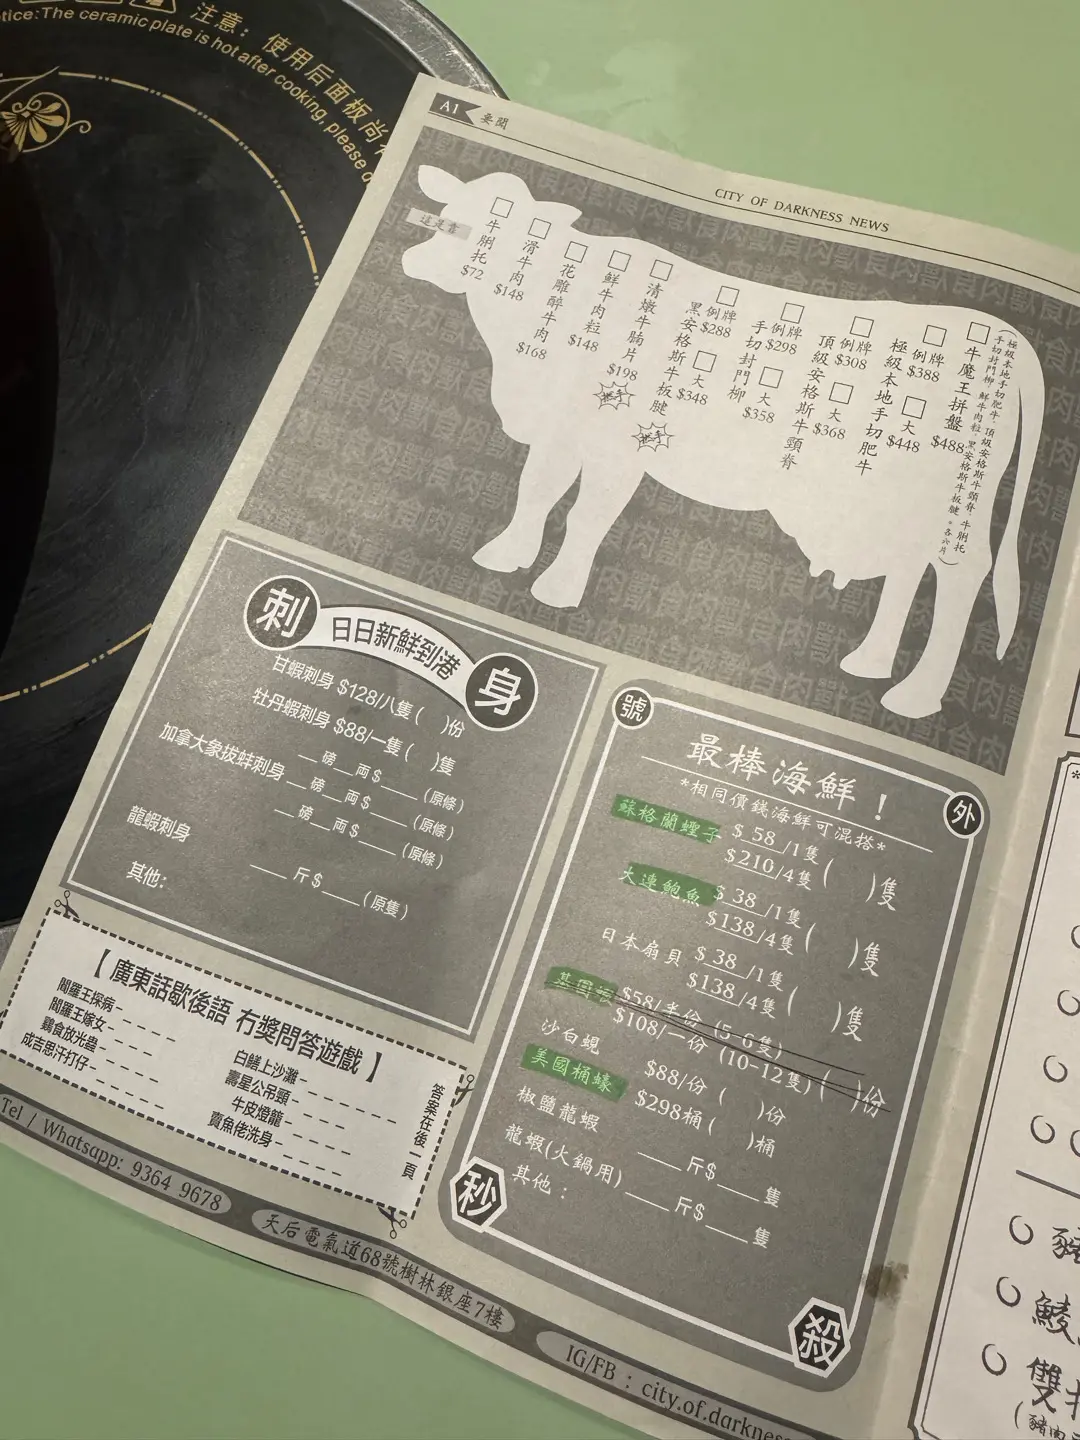 注意：使用后面板尚
tice:The ceramic plate is hot after cooking, please d
A1 要聞
CITY OF DARKNESS NEWS
這是書
牛脷托 $72
滑牛肉 $148
花雕醉牛肉 $168
鮮牛肉粒 $148
清燉牛腩片 $198
黑安格斯牛板腱 例牌 $288 大 $348
手切封門柳 例牌 $298 大 $358
頂級安格斯牛頸脊 例牌 $308 大 $368
極級本地手切肥牛 例牌 $388 大 $448
牛魔王拼盤 $488
(極級本地手切肥牛、頂級安格斯牛頸脊、牛脷托
手切封門柳、鮮牛肉粒、黑安格斯牛板腱。各六片)
刺身
日日新鮮到港
甘蝦刺身 $128/八隻 ( )份
牡丹蝦刺身 $88/一隻 ( )隻
__磅__両$____(原條)
加拿大象拔蚌刺身 __磅__両$____(原條)
__磅__両$____(原條)
龍蝦刺身 ____斤$____(原隻)
其他：
【 廣東話歇後語 冇獎問答遊戲 】
閻羅王探病- _ _ _ _
閻羅王嫁女- _ _ _ _
鷄食放光蟲- _ _ _ _
成吉思汗打仔- _ _ _ _
白鱔上沙灘- _ _ _ _ _ _
壽星公吊頸- _ _ _ _
牛皮燈籠- _ _ _ _
賣魚佬洗身- _ _ _ _
答案在後一頁
號外
最棒海鮮！
*相同價錢海鮮可混搭*
蘇格蘭蟶子 $ 58 /1隻
$210/4隻 ( )隻
大連鮑魚 $ 38 /1隻
$138/4隻 ( )隻
日本扇貝 $ 38 /1隻
$138/4隻 ( )隻
基圍蝦 $58/半份 (5-6隻)
$108/一份 (10-12隻) ( )份
沙白蜆 $88/份 ( )份
美國桶蠔 $298桶 ( )桶
椒鹽龍蝦 ____斤$____隻
龍蝦(火鍋用) ____斤$____隻
其他：
秒殺
Tel / Whatsapp: 9364 9678
天后電氣道68號樹林銀座7樓
IG/FB : city.of.darkness
鯪
雙
(豬肉